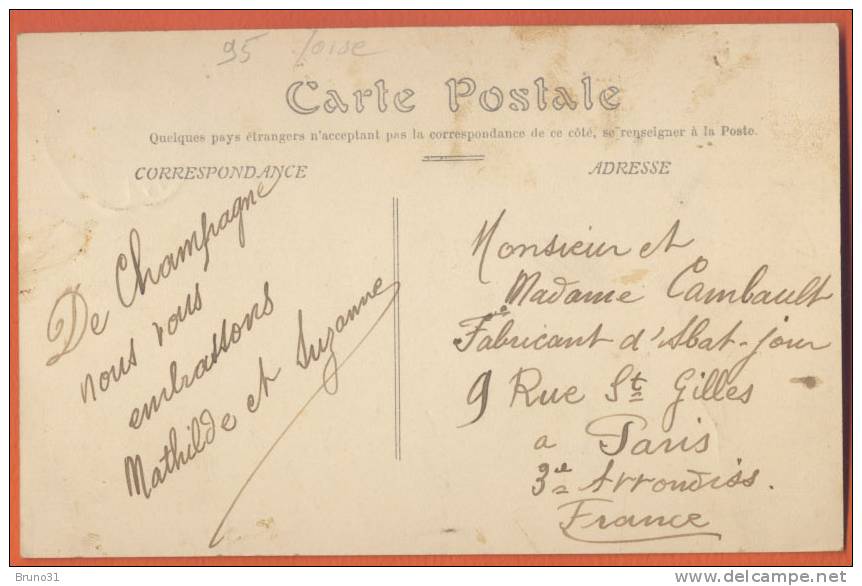 95 /oise
Carte Postale
Quelques pays étrangers n'acceptent pas la correspondance de ce côté, se renseigner à la Poste.
CORRESPONDANCE
De Champagne
nous vous
embrassons
Mathilde et Suzanne
ADRESSE
Monsieur et
Madame Cambault
Fabricant d'Abat-jour
9 Rue St Gilles
a Paris
3e Arrondiss.
France
Bruno31
http://www.delcampe.net